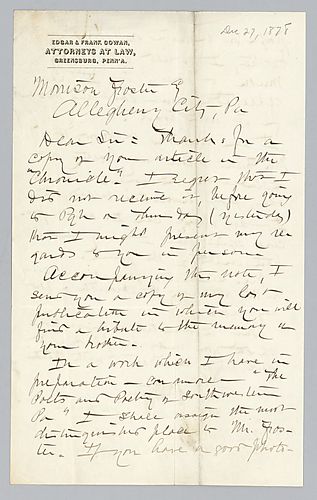 Dec 27, 1878
EDGAR & FRANK COWAN,
ATTORNEYS AT LAW,
GREENSBURG, PENN'A.
Morrison Foster E
Allegheny City, Pa
Dear Sir: Thanks for a
copy of your article in the
"Chronicle". I regret that I
did not receive it, before going
to Pgh on Thursday (yesterday)
that I might present my re
gards to you in person
Accompanying this note, I
send you a copy of my last
publication in which you will
find a tribute to the memory of
your brother.
In a work which I have in
preparation — "The
Poets and Poetry of Southwestern
Pa" I shall assign the most
distinguished place to Mr. Fos-
ter. If you have a good photo-